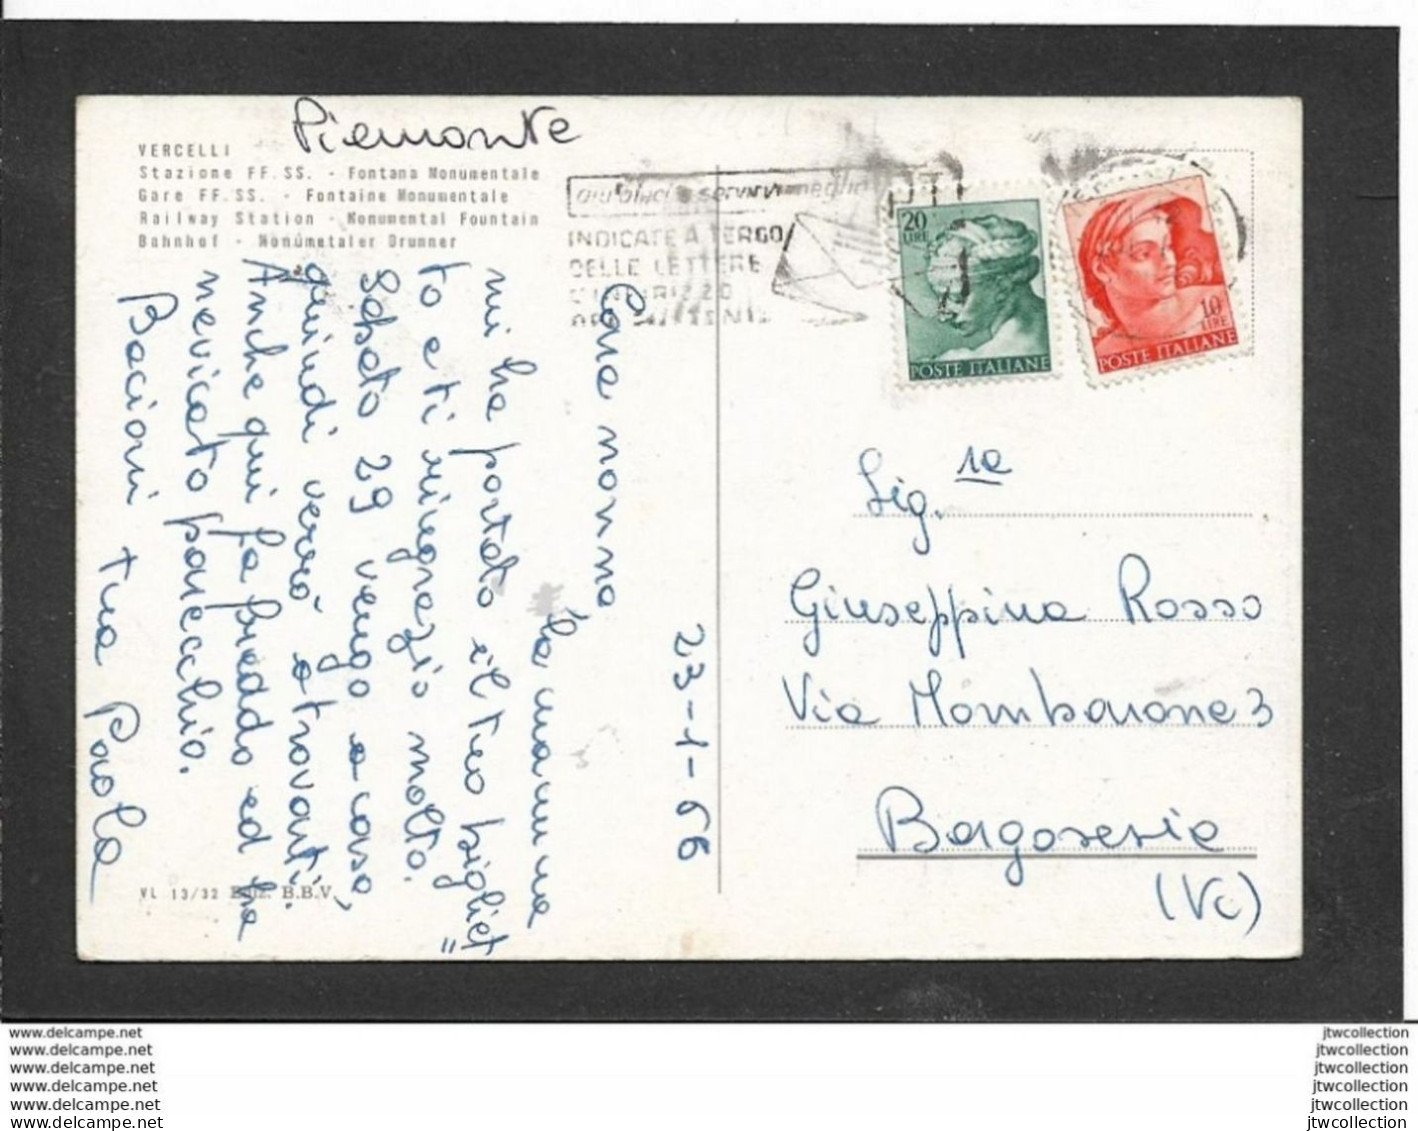 Piemonte
VERCELLI
Stazione FF.SS. - Fontana Monumentale
Gare FF.SS. - Fontaine Monumentale
Railway Station - Monumental Fountain
Bahnhof - Monumetaler Brunner
aiutateci a servirvi meglio
INDICATE A TERGO
DELLE LETTERE
L'INDIRIZZO
DEL MITTENTE
20
LIRE
POSTE ITALIANE
10
LIRE
POSTE ITALIANE
23-1-66
Cara nonna
la mamma
mi ha portato il tuo bigliet=
to e ti ringrazio molto.
Sabato 29 vengo a casa,
quindi verrò a trovarti.
Anche qui fa freddo ed ha
nevicato parecchio.
Bacioni tua Paola
Sig.ra
Giuseppina Rosso
Via Mombarone 3
(Vc)
VL 13/32 Ediz. B.B.V.
www.delcampe.net
www.delcampe.net
www.delcampe.net
www.delcampe.net
www.delcampe.net
www.delcampe.net
jtwcollection
jtwcollection
jtwcollection
jtwcollection
jtwcollection
jtwcollection